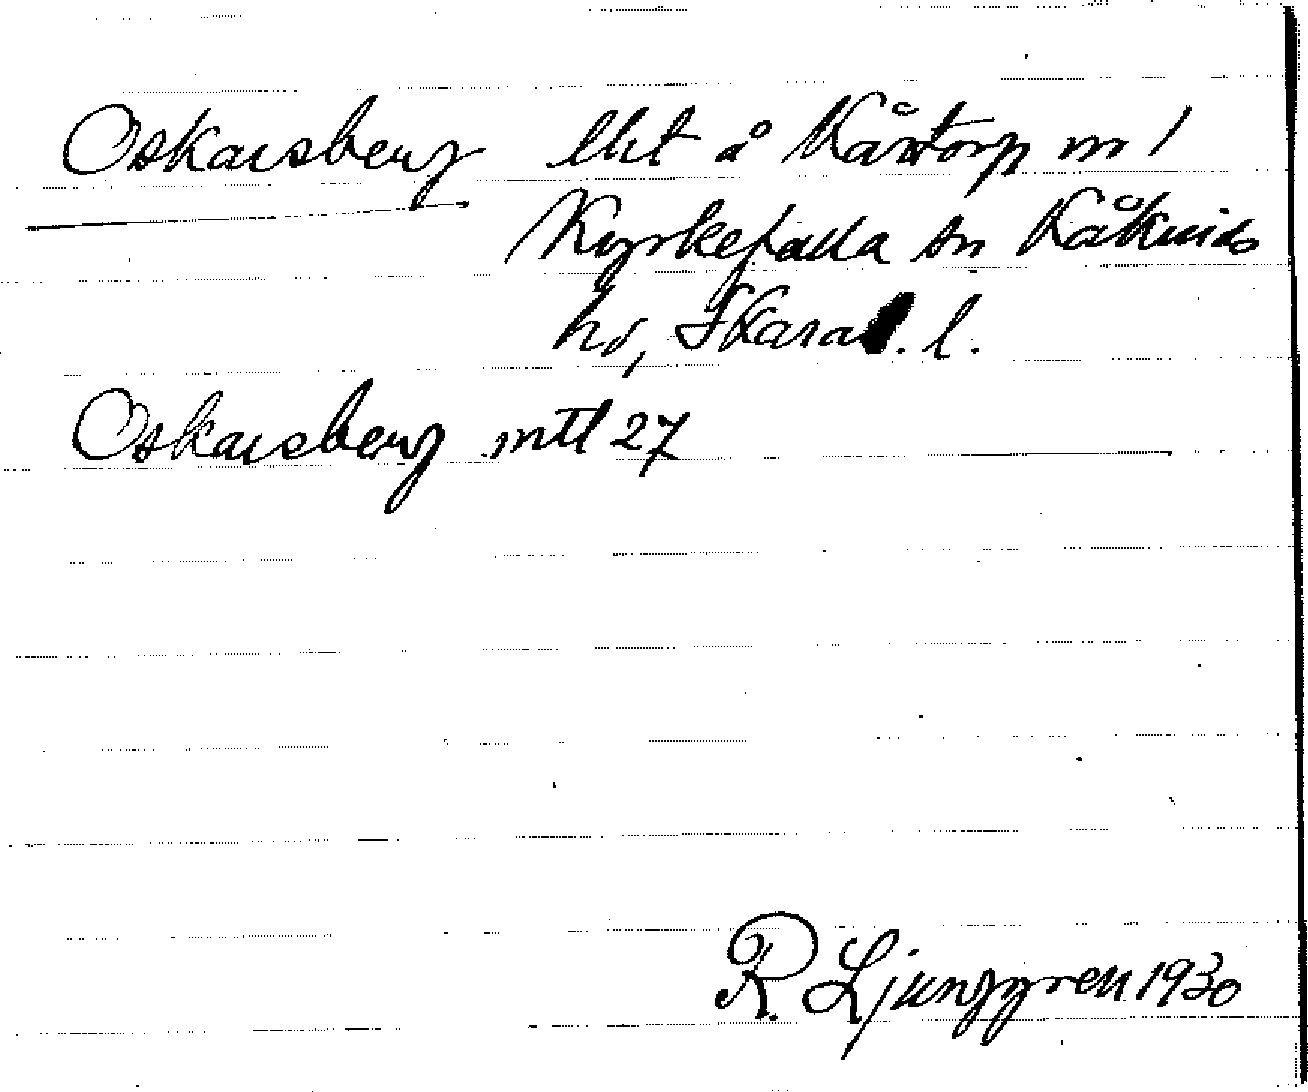 Oskarsberg lht å Kårtorp nr 1
Kyrkefalla sn Kåkinds
hd, Skarab. l.
Oskarsberg mtl 27
R Ljunggren 1930